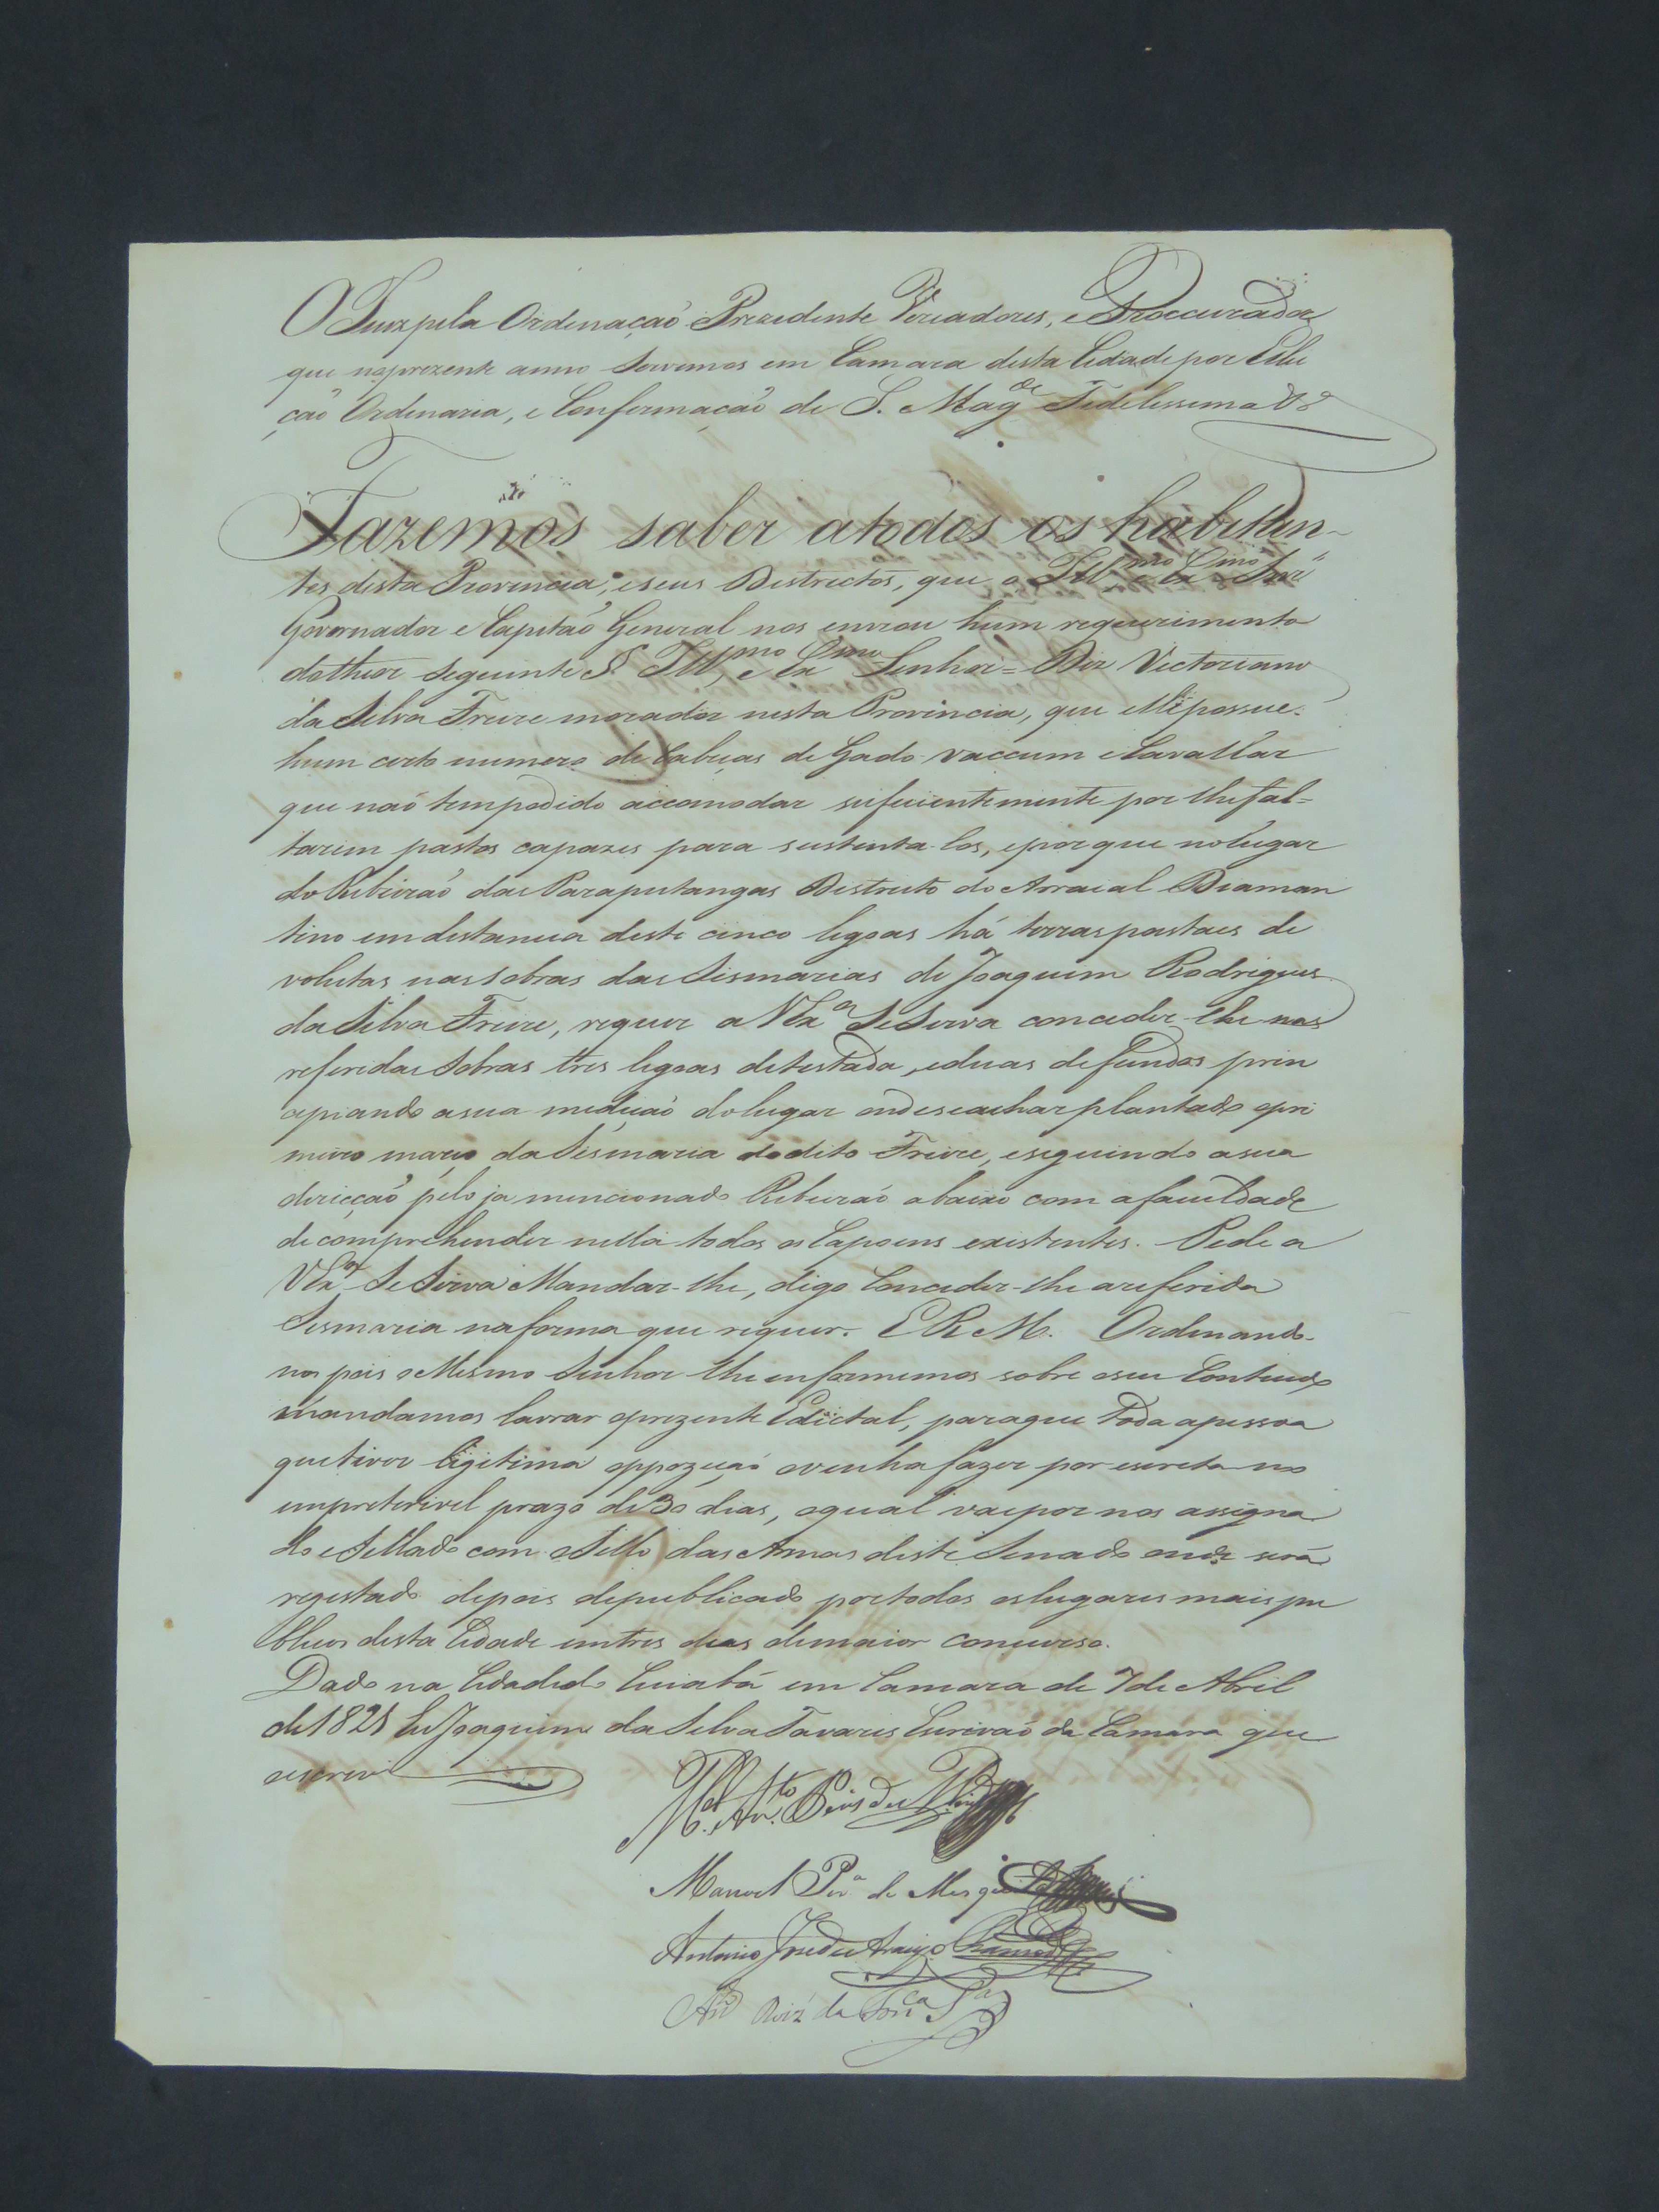 O Juiz pela Ordenaçaõ Prezidente Vereadores, e Proccurador
que no prezente anno Servimos em Camara desta Cidade por Elei
çaõ Ordinaria, e Confirmaçaõ de S. Magde Fidelissima &ª
Fazemos saber a todos os habitan-
tes desta Provincia, e seus Destrictos, que o Illmo e Exmo Snr
Governador e Capitaõ General nos enviou hum requerimento
do theor seguinte § Illmo, e Exmo Senhor = Diz Victoriano
da Silva Freire morador nesta Provincia, que elle possue
hum certo numero de Cabeças de Gado vaccum e Cavallar
que naõ tem podido accomodar suficientemente por lhe fal=
tarem pastos capazes para sustenta-los, e porque no lugar
do Ribeiraõ das Paraputangas Destricto do Arraial Diaman
tino em distancia deste cinco legoas há terras pastaes de
volutas nas sobras das Sismarias de Joaquim Rodrigues
da Silva Freire, requer a VExa Se Sirva conceder-lhe nas
referidas Sobras tres legoas de testada, e duas de fundos prin
cipiando a sua mediçaõ do lugar onde se achar plantado o pri
meiro marco da Sismaria do dito Freire, e seguindo a sua
direcçaõ pelo ja mencionado Ribeiraõ abaixo com a faculdade
de comprehender nella todos os Capoens existentes. Pede a
VExa Se Sirva Mandar-lhe, digo Conceder-lhe a referida
Sismaria na forma que requer. E R M. Ordenando-
nos pois o Mesmo Senhor lhe informemos sobre o seu Contheudo
mandamos lavrar o prezente Edictal, para que toda a pessoa
que tiver legitima oppoziçaõ o venha fazer por escrito no
impreterivel prazo de 30 dias, o qual vai por nos assigna
do e Sellado com o Sello das Armas deste Senado onde será
registado depois de publicado por todos os lugares mais pu
blicos desta Cidade em tres dias de maior concurso.
Dado na Cidade do Cuiabá em Camara de 7 de Abril
de 1821 Eu Joaquim da Silva Tavares Escrivaõ da Camara que
o escrevi
Mel Anto Pires de
Manoel Pera de Mesquita
Antonio José de Araujo
Anto Roiz da Sa